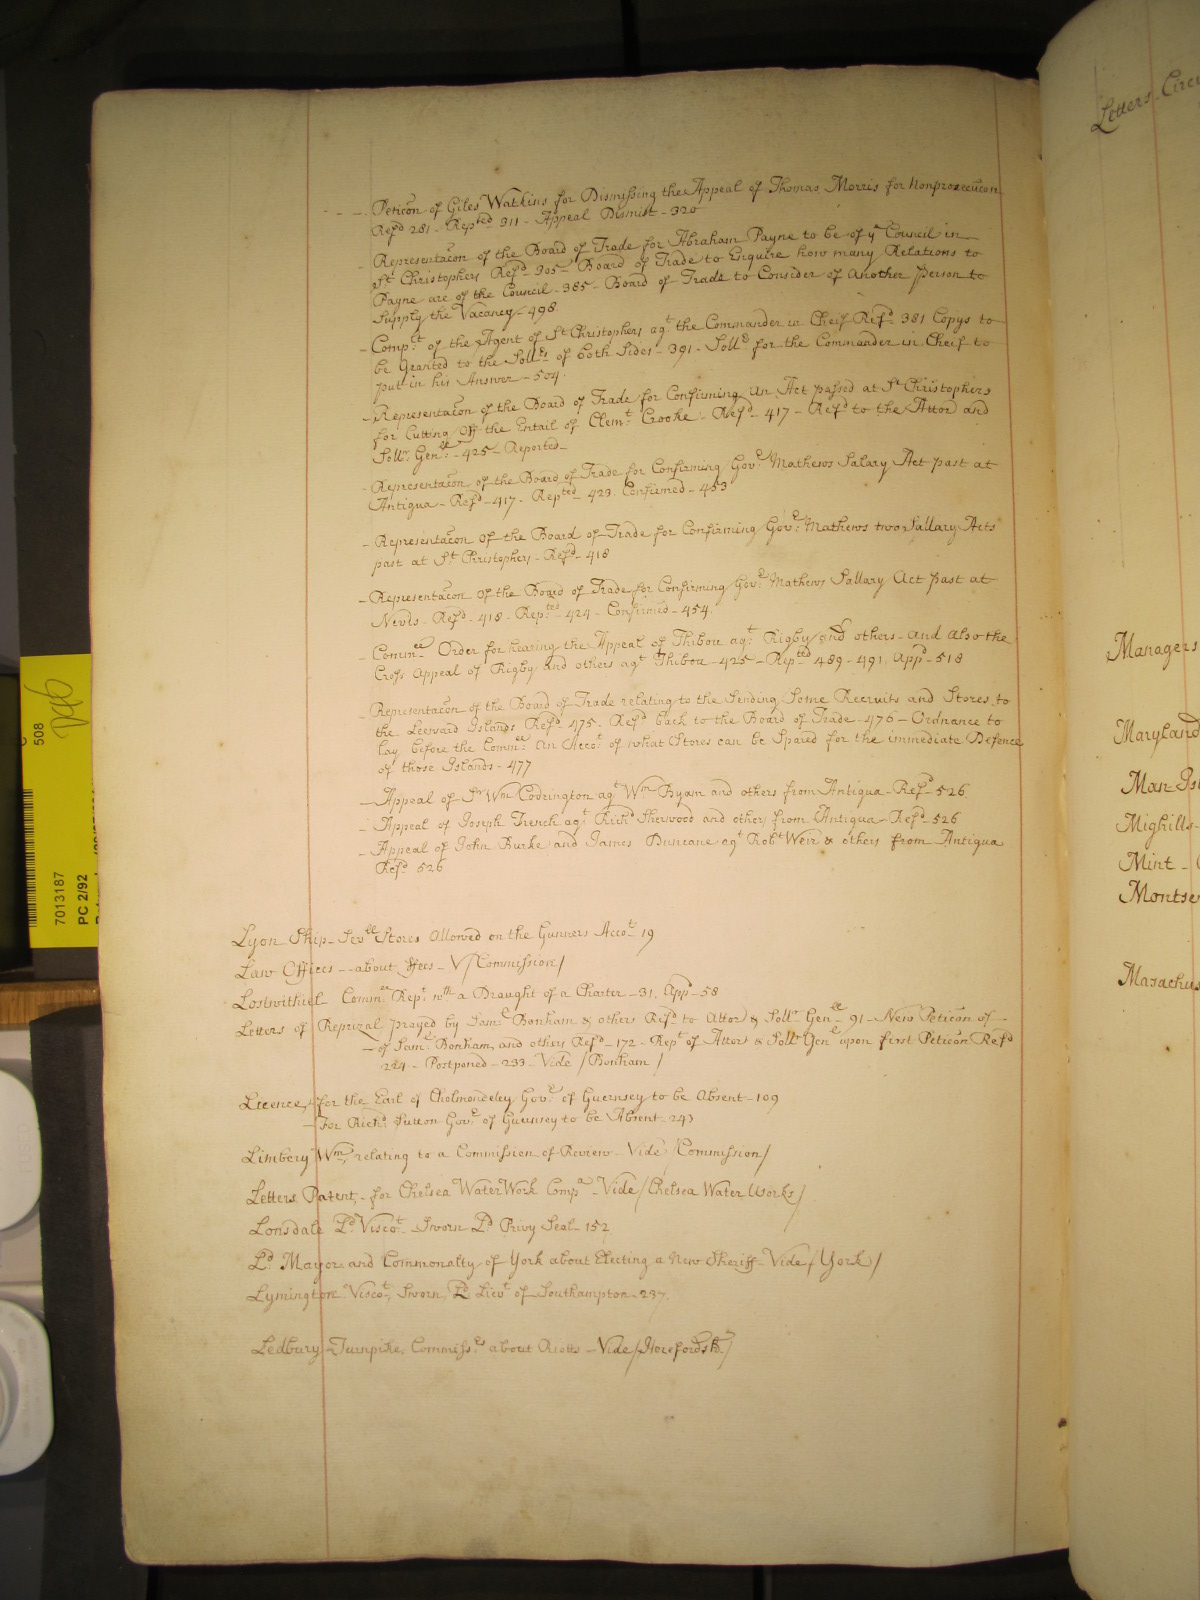 - - - Peticon of Giles Watkins for Dismissing the Appeal of Thomas Morris for Nonprosecucon
Refd 281 - Repted 311 - Appeal Dismist - 320
- Representacon of the Board of Trade for Abraham Payne to be of ye Council in
St Christophers Refd - 305 - Board of Trade to Enquire how many Relations to
Payne are of the Council - 385 - Board of Trade to Consider of another person to
supply the Vacancy - 498
- Compt of the Agent of St Christophers agt the Commander in Cheif Refd 381 Copys to
be Granted to the Sollrs of both Sides - 391 - Sollr for the Commander in Cheif to
put in his Answer - 504
- Representacon of the Board of Trade for Confirming an Act passed at St Christophers
for Cutting off the Entail of Clemt Crooke - Refd - 417 - Refd to the Attor and
Sollr Genll - 425 - Reported -
- Representacon of the Board of Trade for Confirming Govr Mathews Salary Act past at
Antigua - Refd - 417 - Repted - 423. Confirmed - 453
- Representacon of the Board of Trade for Confirming Govr Mathews two Sallary Acts
past at St Christophers - Refd - 418
- Representacon of the Board of Trade for Confirming Govr Mathews Sallary Act past at
Nevis - Refd - 418 - Repted - 424 - Confirmed - 454.
- Commee Order for hearing the Appeal of Thibou agt Rigby and others - and also the
Cross Appeal of Rigby and others agt Thibou - 425 - Repted 489 - 491. Appd - 518
- Representacon of the Board of Trade relating to the Sending Some Recruits and Stores to
the Leeward Islands Refd 475. Refd back to the Board of Trade - 476 - Ordnance to
lay before the Commee an Accot of what Stores can be Spared for the immediate Defence
of those Islands - 477
- Appeal of Sr Wm Codrington agt Wm Byam and others from Antigua - Refd - 526
- Appeal of Joseph French agt Richd Sherwood and others from Antigua - Refd - 526
- Appeal of John Burke and James Duncane agt Robt Weir & others from Antigua
Refd 526
Lyon Ship - Sevll Stores allowed on the Gunners Accot - 19
Law Offices - - about ffees - V/Commission/
Lostwithiel Commee Rept wth a Draught of a Charter - 31. Appd - 58
Letters of Reprizal prayed by Saml Bonham & others Refd to Attor & Sollr Genll - 91 - New Peticon of -
- of Saml Bonham, and others Refd - 172 - Rept of Attor & Sollr Genl upon first Peticon Refd
224 - Postponed - 233 - Vide /Bonham/
Licence, for the Earl of Cholmondeley Govr of Guernsey to be Absent - 109
- For Richd Sutton Govr of Guernsey to be Absent - 243
Limbery Wm, relating to a Commission of Review - Vide /Commission/
Letters Patent, - for Chelsea Water Work Compa - Vide /Chelsea Water Works/
Lonsdale Ld Viscot - Sworn Ld Privy Seal - 152
Ld Mayor and Commonalty of York about Electing a New Sheriff - Vide /York/
Lymington Viscot, Sworn, Ld Lieut of Southampton - 237.
Ledbury Turnpike, Commissrs about Riotts - Vide /Herefordsh./
Letters - Circu
Managers
Maryland
Man Isl
Mighills
Mint -
Montse
Masachus
508
7013187
PC 2/92